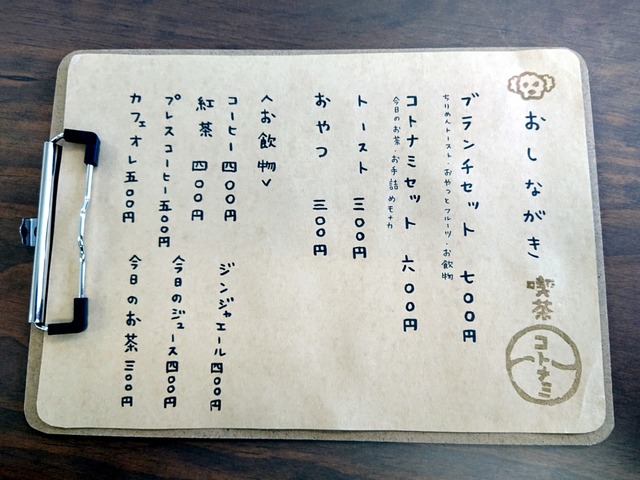 おしながき
喫茶
コトナミ
ブランチセット 七〇〇円
ちりめんトースト・おやつとフルーツ・お飲物
コトナミセット 六〇〇円
今日のお茶・お手詰めモナカ
トースト 三〇〇円
おやつ 三〇〇円
〈お飲物〉
コーヒー 四〇〇円
紅茶 四〇〇円
プレスコーヒー 五〇〇円
カフェオレ 五〇〇円
ジンジャエール 四〇〇円
今日のジュース 四〇〇円
今日のお茶 三〇〇円